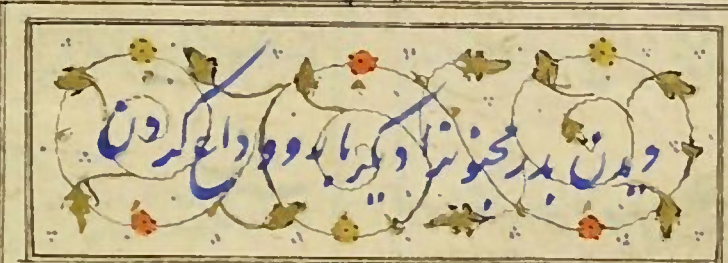 دیدن پدر مجنونرا دیگر باره و وداع کردن